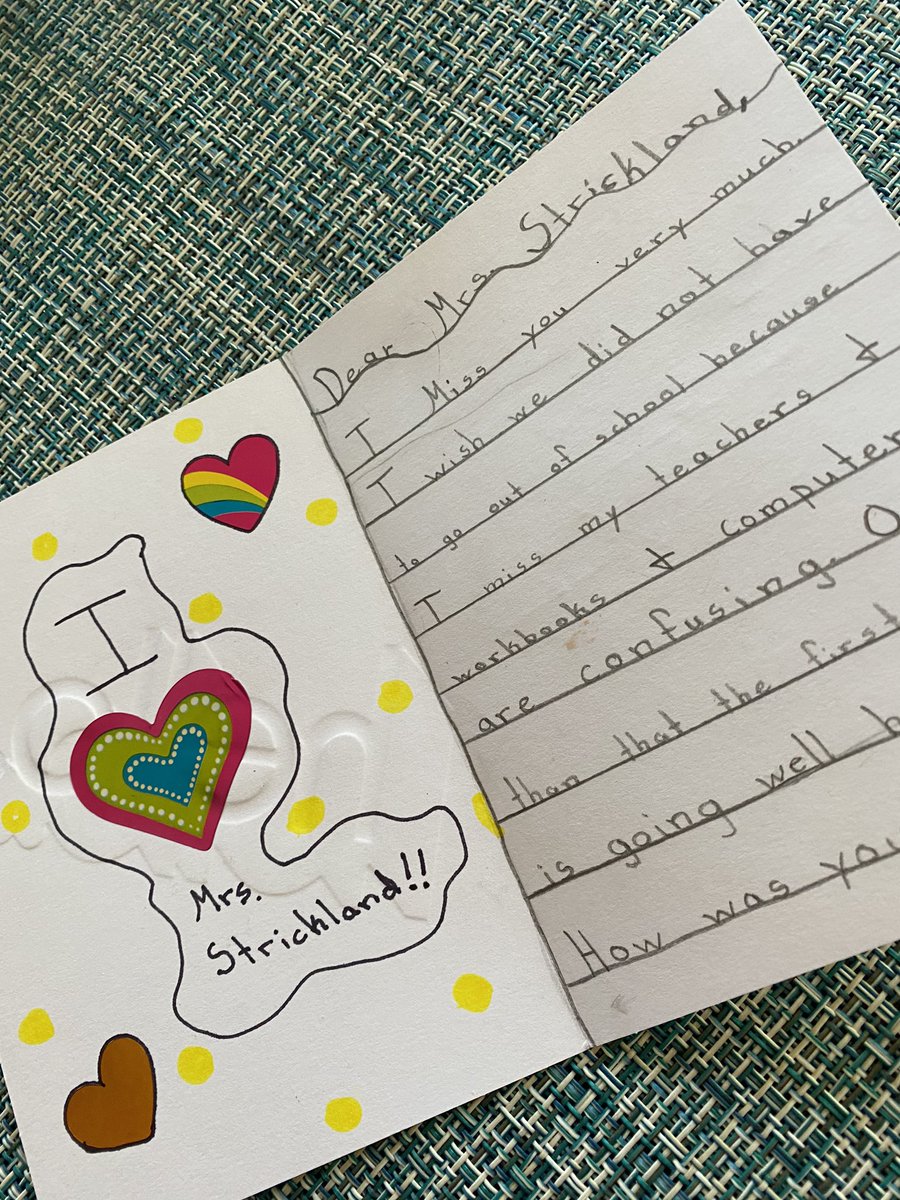 I
Mrs.
Strickland!!
Dear Mrs. Strickland,
I Miss you very much.
I wish we did not have
to go out of school because
I miss my teachers &
workbooks & computer
are confusing.
than that the first
is going well
How was you